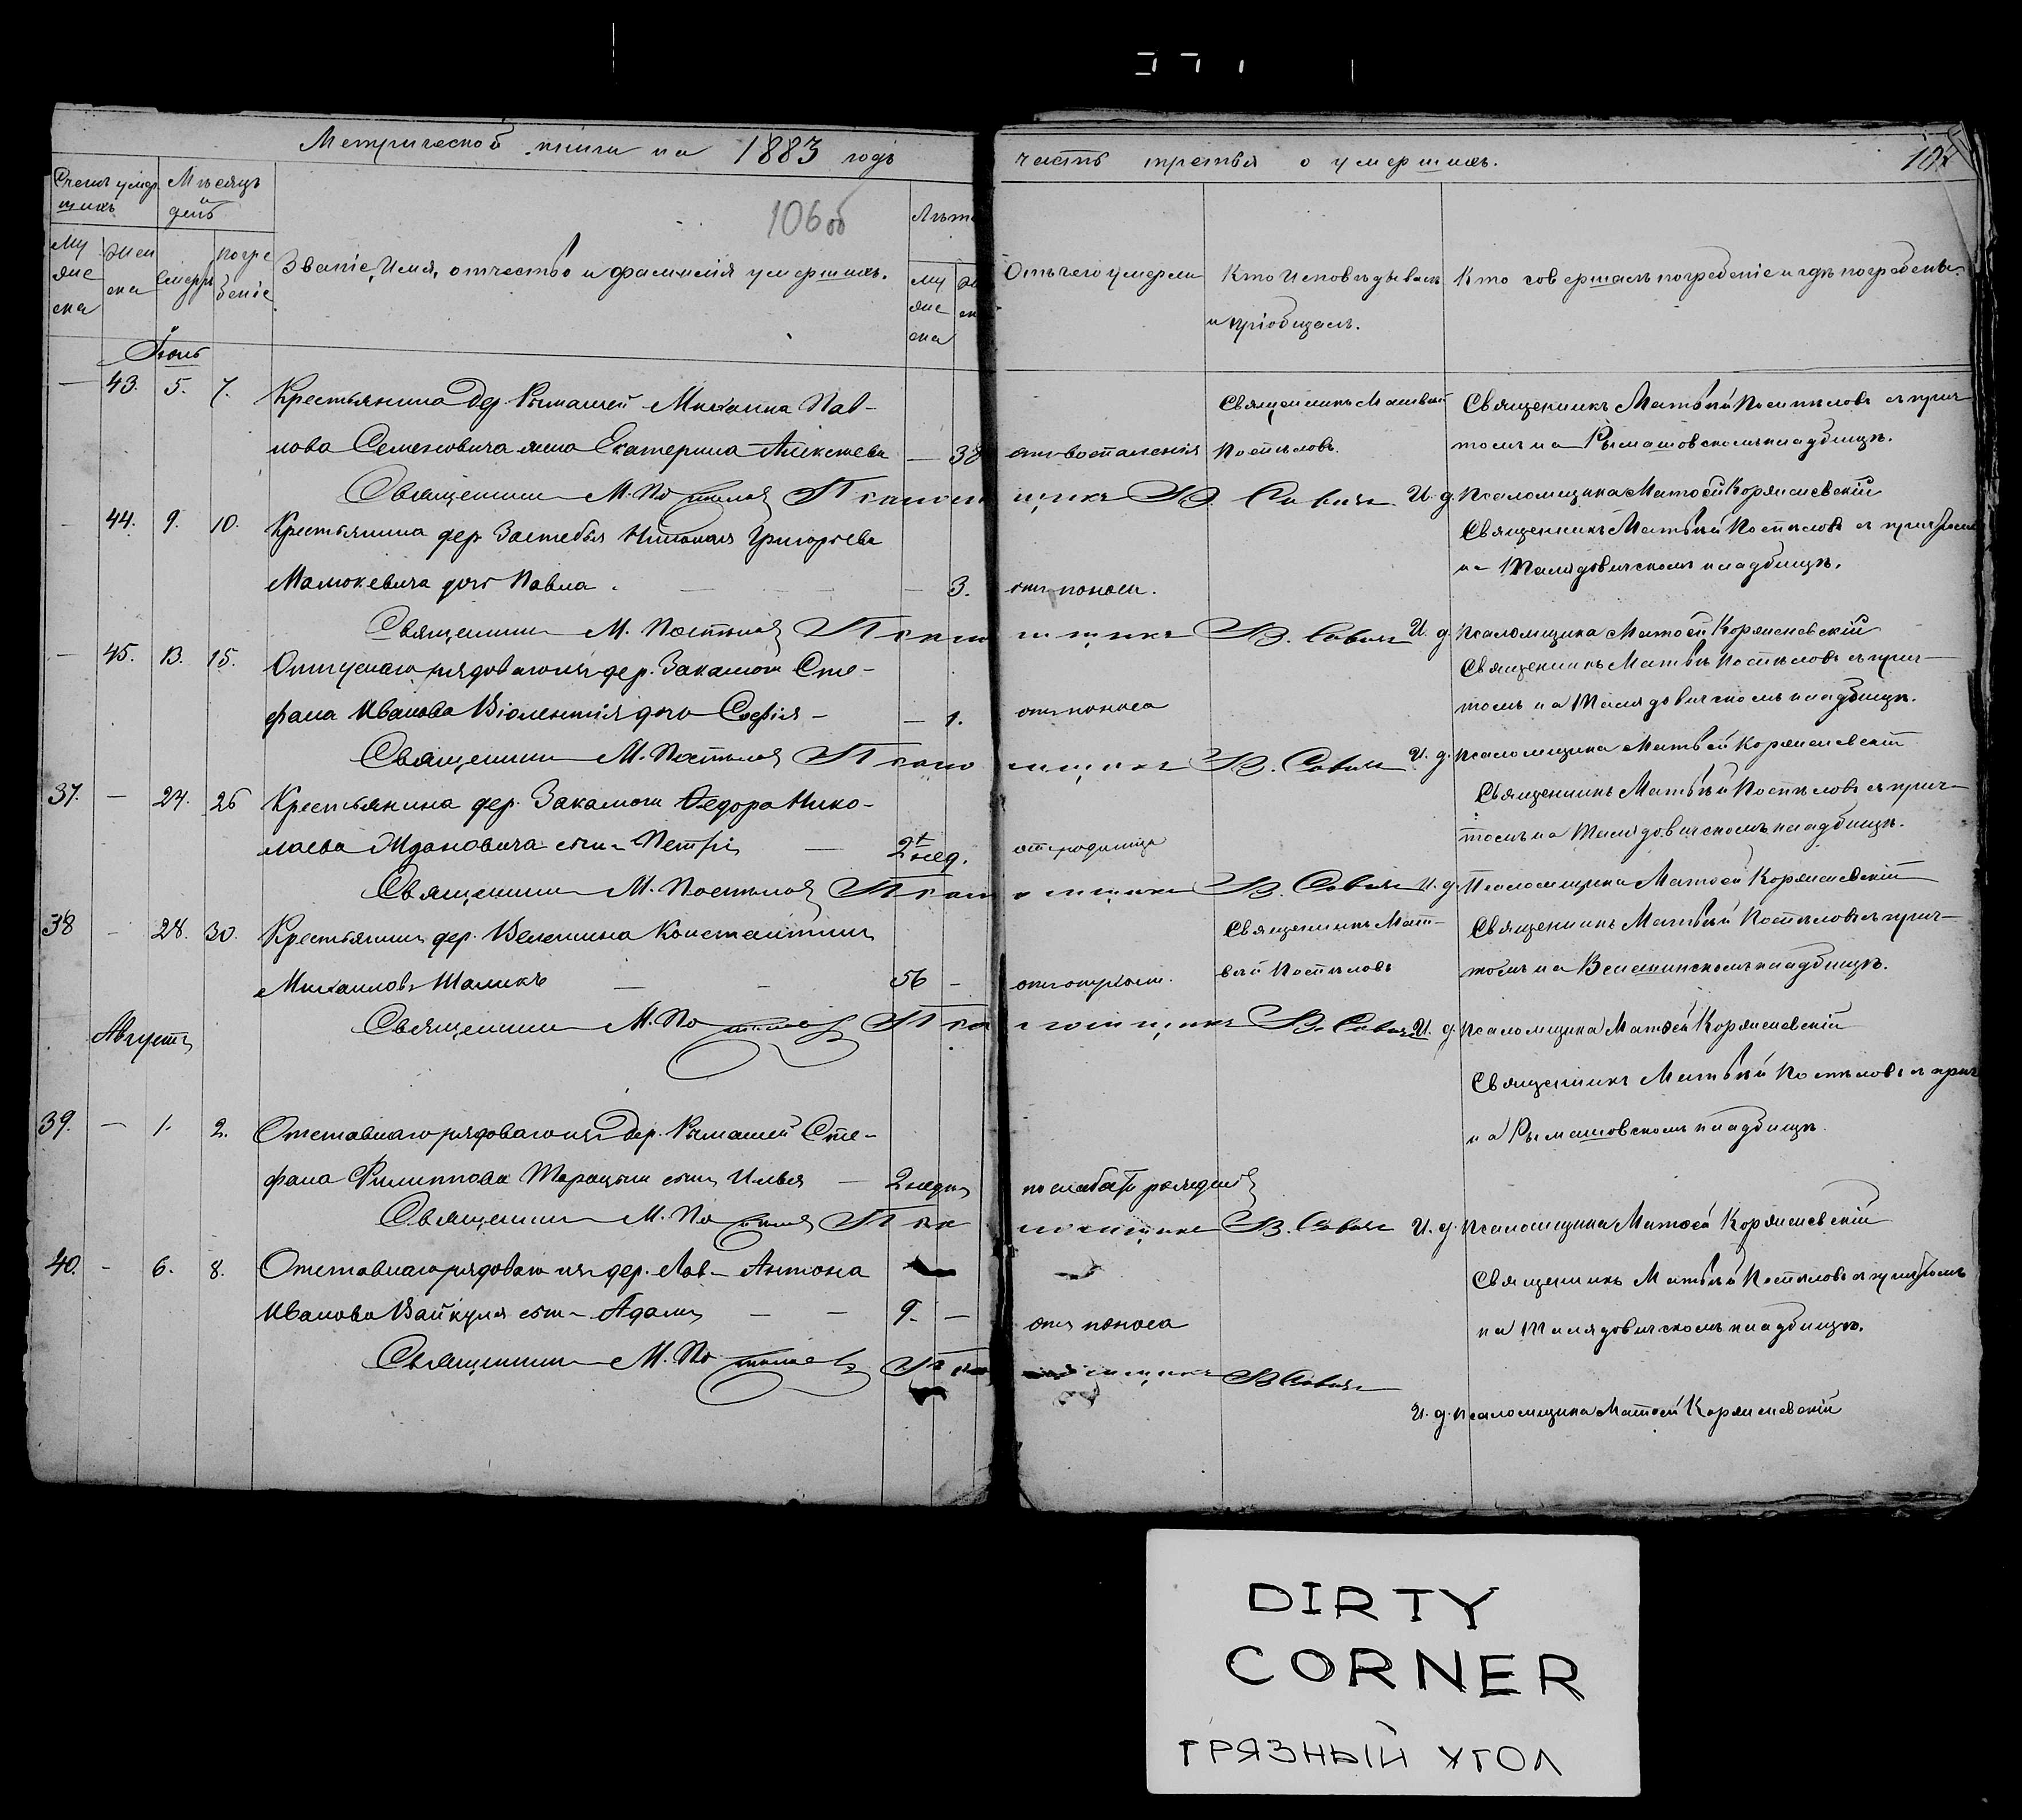 Метрической книги на 1883 годъ
часть третья о умершихъ.
106об
Счетъ умер
шихъ
Мѣсяцъ
и
день
Му
жес
ска
Жен
ска
Смерти
погре
бенiе
Званiе, Имя, отчество и фамилiя умершихъ.
Лѣта
Му
жес
ска
Отъ чего умерли
Кто Исповѣдывалъ
и прiобщалъ.
Кто совершалъ погребенiе и гдѣ погребены.
Iюль
— 43. 5. 7. Крестьянина дер. Рымашей Михаила Пав-
лова Семеновича жена Екатерина Алексѣева — 38
отъ воспаленiя
Священникъ Матвей
Постѣловъ.
Священникъ Матѳѣй Постѣловъ съ прич-
томъ на Рымашовскомъ кладбищѣ.
Священникъ М. Постѣловъ Псаломщикъ В. Савичъ И. д. псаломщика Матѳей Корженевскiй
— 44. 9. 10. Крестьянина дер. Застебья Николая Григорьева
Малюкевича дочь Павла. — 3.
отъ поноса.
Священникъ Матѳѣй Постѣловъ съ причтомъ
на кладбищѣ.
Священникъ М. Постѣловъ Псаломщикъ В. Савичъ И. д. псаломщика Матѳей Корженевскiй
— 45. 13. 15. Отпускнаго рядоваго изъ дер. Закалюги Сте-
фана Иванова дочь Софiя — — 1.
отъ поноса
Священникъ Матѳѣй Постѣловъ съ прич-
томъ на кладбищѣ.
Священникъ М. Постѣловъ Псаломщикъ В. Савичъ И. д. псаломщика Матѳей Корженевскiй
37. — 24. 26 Крестьянина дер. Ѳедора Нико-
лаева Ждановича сынъ Петръ — 2 нед.
отъ родимца
Священникъ Матѳѣй Постѣловъ съ прич-
томъ на кладбищѣ.
Священникъ М. Постѣловъ Псаломщикъ В. Савичъ И. д. Псаломщика Матѳей Корженевскiй
38 — 28. 30. Крестьянинъ дер. Велешина Константинъ
Михаиловъ Шаликъ — — 56 —
Священникъ Мат-
вей Постѣловъ
Священникъ Матѳѣй Постѣловъ съ прич-
томъ на Велешинскомъ кладбищѣ.
Священникъ М. Постѣловъ Псаломщикъ В. Савичъ И. д. псаломщика Матѳей Корженевскiй
Августъ
39. — 1. 2. Отставнаго рядоваго изъ дер. Рымашей Сте-
фана Филиппова сынъ Илья — 2 недѣл
по слабости рожденiя
Священникъ Матѳѣй Постѣловъ съ прич
на Рымашовскомъ кладбищѣ.
Священникъ М. Постѣловъ Псаломщикъ В. Савичъ И. д. псаломщика Матѳей Корженевскiй
40. — 6. 8. Отставнаго рядоваго изъ дер. Антона
Иванова Вайкуля сынъ Адамъ — — 9. —
отъ поноса
Священникъ Матѳѣй Постѣловъ съ причтомъ
на кладбищѣ.
Священникъ М. Постѣловъ Псаломщикъ В. Савичъ
И. д. псаломщика Матѳей Корженевскiй
DIRTY
CORNER
ГРЯЗНЫЙ УГОЛ